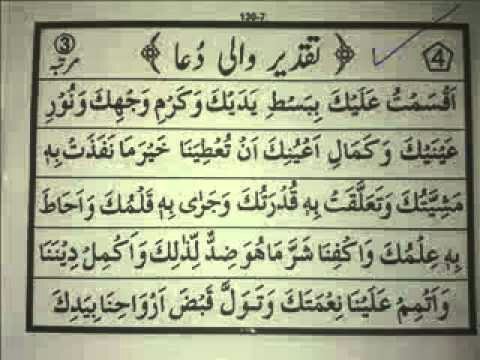 130-7
④ ﴿ تقدیر والی دُعا ﴾ ③ مرتبہ
اَقْسَمْتُ عَلَيْكَ بِبَسْطِ يَدَيْكَ وَكَرَمِ وَجْهِكَ وَنُوْرِ
عَيْنَيْكَ وَكَمَالِ اَعْيُنِكَ اَنْ تُعْطِيَنَا خَيْرَ مَا نَفَذَتْ بِهٖ
مَشِيَّتُكَ وَتَعَلَّقَتْ بِهٖ قُدْرَتُكَ وَجَرٰى بِهٖ قَلَمُكَ وَاَحَاطَ
بِهٖ عِلْمُكَ وَاكْفِنَا شَرَّ مَا هُوَ ضِدٌّ لِّذٰلِكَ وَاَكْمِلْ دِيْنَنَا
وَاَتْمِمْ عَلَيْنَا نِعْمَتَكَ وَتَوَلَّ قَبْضَ اَرْوَاحِنَا بِيَدِكَ